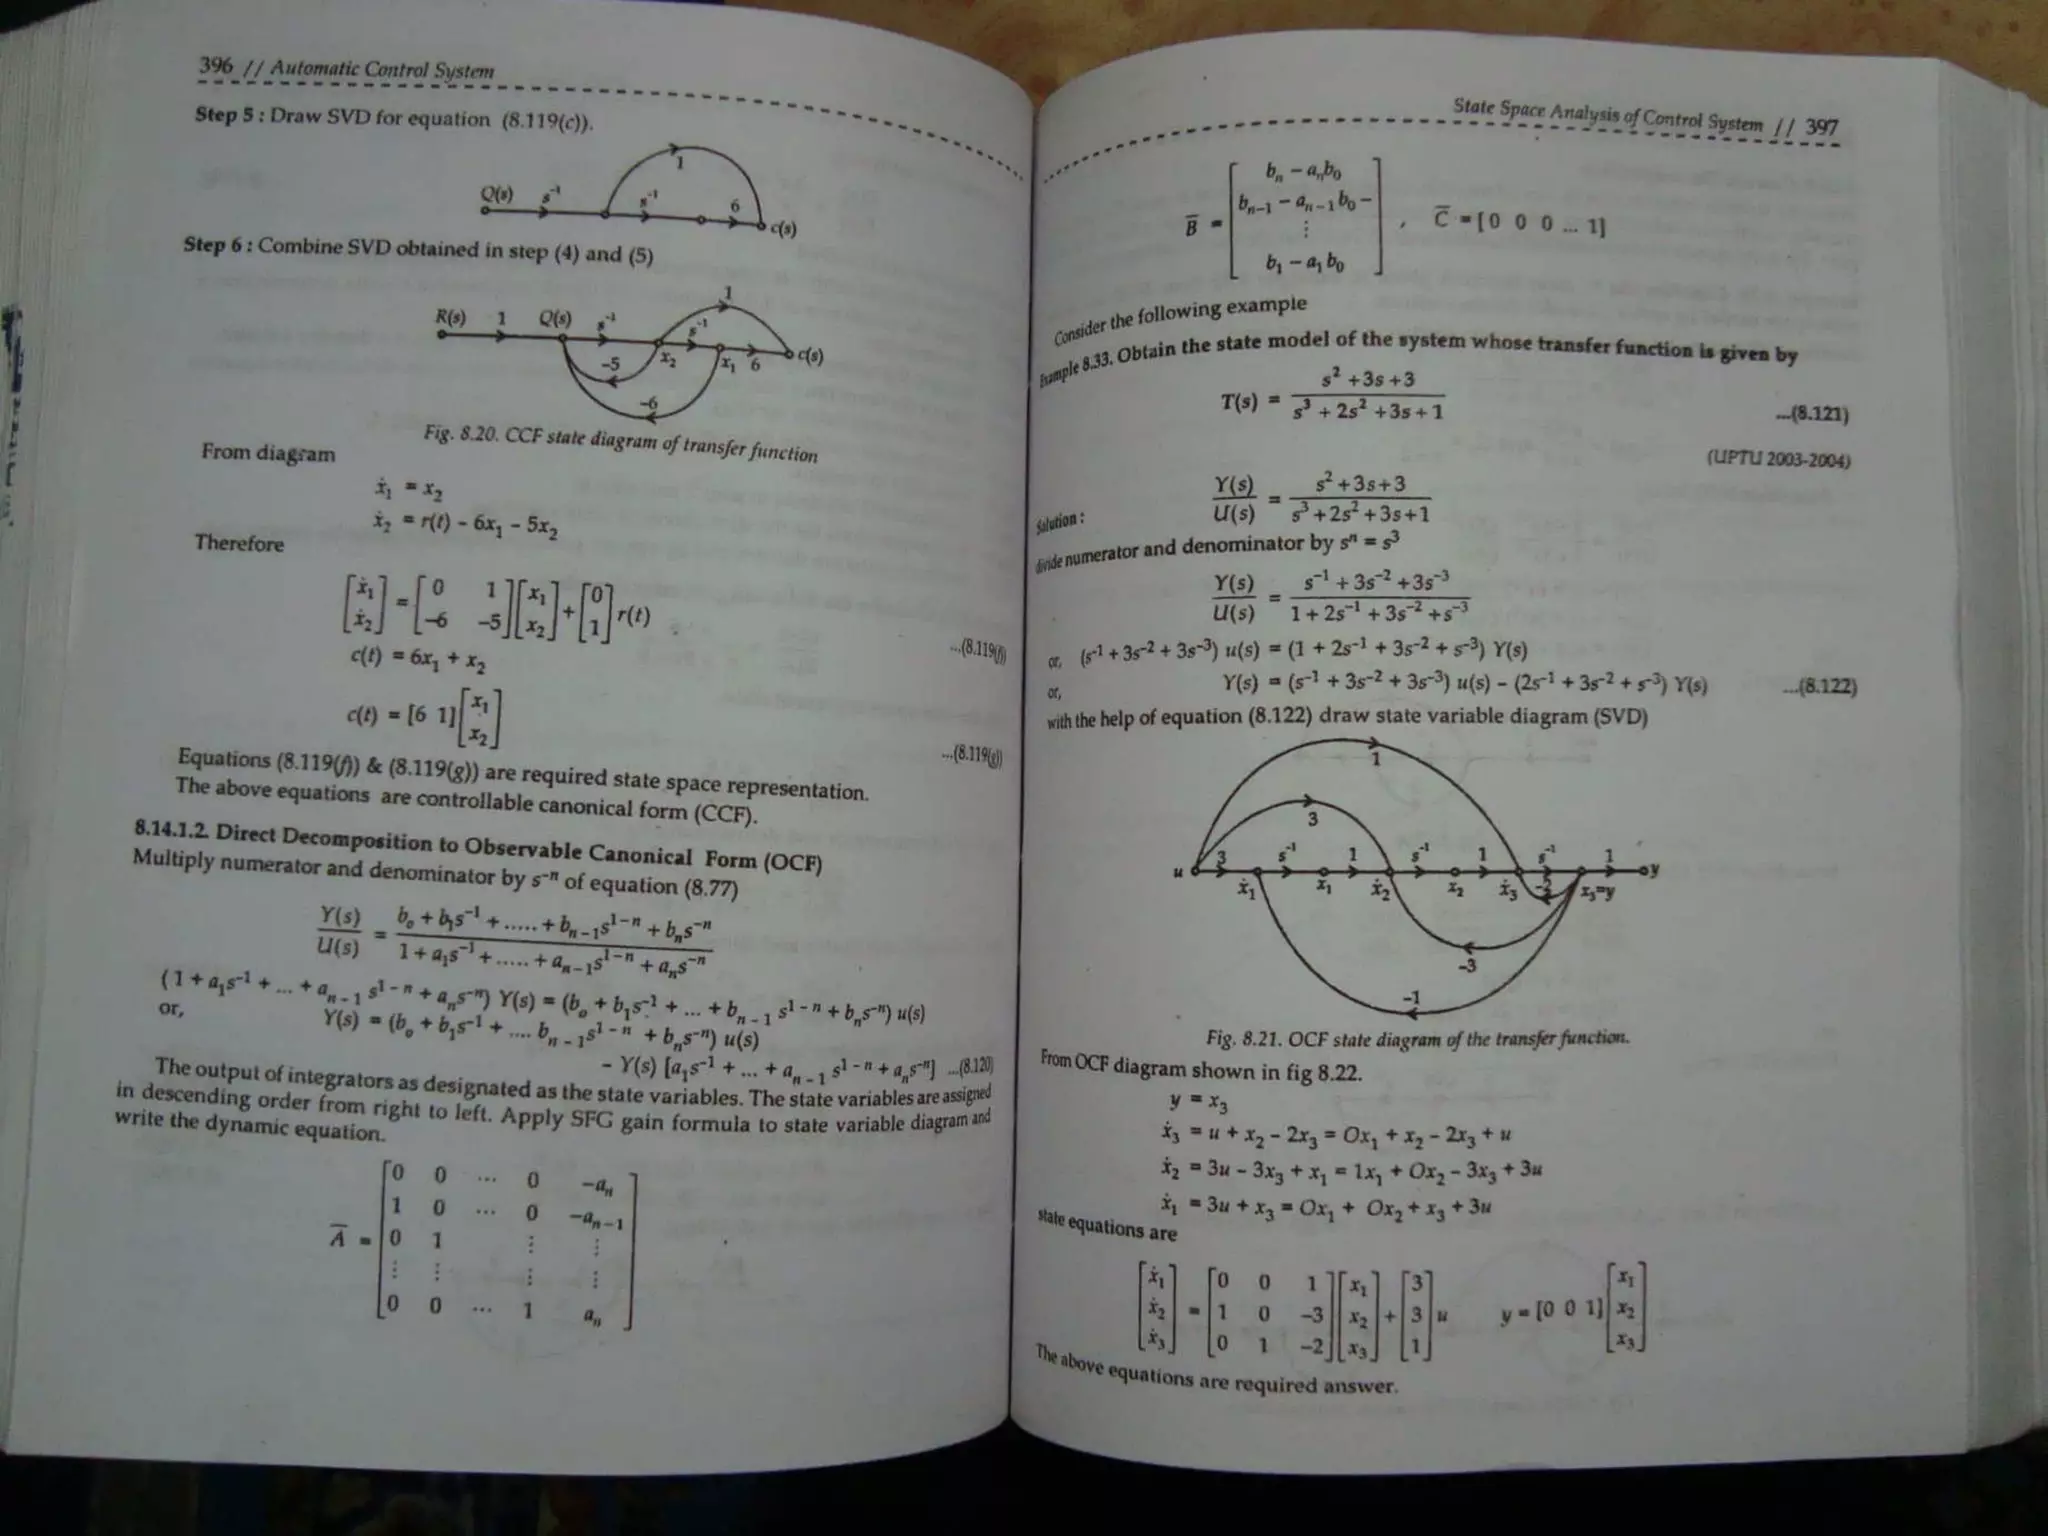 396 // Automatic Control System
Step 5 : Draw SVD for equation (8.119(c)).
1
Q(s) s⁻¹ s⁻¹ 6 c(s)
Step 6 : Combine SVD obtained in step (4) and (5)
1
R(s) 1 Q(s) s⁻¹ s⁻¹ c(s)
-5 x₂ x₁ 6
-6
Fig. 8.20. CCF state diagram of transfer function
From diagram
ẋ₁ = x₂
ẋ₂ = r(t) - 6x₁ - 5x₂
Therefore
[ẋ₁ ẋ₂] = [0 1 -6 -5] [x₁ x₂] + [0 1] r(t) ...(8.119(f))
c(t) = 6x₁ + x₂
c(t) = [6 1] [x₁ x₂] ...(8.119(g))
Equations (8.119(f)) & (8.119(g)) are required state space representation.
The above equations are controllable canonical form (CCF).
8.14.1.2. Direct Decomposition to Observable Canonical Form (OCF)
Multiply numerator and denominator by s⁻ⁿ of equation (8.77)
Y(s) / U(s) = b₀ + b₁s⁻¹ + ..... + bₙ₋₁s¹⁻ⁿ + bₙs⁻ⁿ / 1 + a₁s⁻¹ + ..... + aₙ₋₁s¹⁻ⁿ + aₙs⁻ⁿ
(1 + a₁s⁻¹ + ... + aₙ₋₁ s¹⁻ⁿ + aₙs⁻ⁿ) Y(s) = (b₀ + b₁s⁻¹ + ... + bₙ₋₁ s¹⁻ⁿ + bₙs⁻ⁿ) u(s)
or, Y(s) = (b₀ + b₁s⁻¹ + .... bₙ₋₁s¹⁻ⁿ + bₙs⁻ⁿ) u(s)
- Y(s) [a₁s⁻¹ + ... + aₙ₋₁ s¹⁻ⁿ + aₙs⁻ⁿ] ...(8.120)
The output of integrators as designated as the state variables. The state variables are assigned
in descending order from right to left. Apply SFG gain formula to state variable diagram and
write the dynamic equation.
0 0 ... 0 -aₙ
1 0 ... 0 -aₙ₋₁
A̅ = 0 1 ⋮ ⋮
⋮ ⋮ ⋮ ⋮
0 0 ... 1 aₙ
State Space Analysis of Control System // 397
bₙ - aₙb₀
bₙ₋₁ - aₙ₋₁b₀ -
B̅ = ⋮ , C̅ = [0 0 0 ... 1]
b₁ - a₁b₀
Consider the following example
Example 8.33. Obtain the state model of the system whose transfer function is given by
T(s) = s² + 3s + 3 / s³ + 2s² + 3s + 1 ...(8.121)
(UPTU 2003-2004)
Solution : Y(s) / U(s) = s² + 3s + 3 / s³ + 2s² + 3s + 1
divide numerator and denominator by sⁿ = s³
Y(s) / U(s) = s⁻¹ + 3s⁻² + 3s⁻³ / 1 + 2s⁻¹ + 3s⁻² + s⁻³
or, (s⁻¹ + 3s⁻² + 3s⁻³) u(s) = (1 + 2s⁻¹ + 3s⁻² + s⁻³) Y(s)
or, Y(s) = (s⁻¹ + 3s⁻² + 3s⁻³) u(s) - (2s⁻¹ + 3s⁻² + s⁻³) Y(s) ...(8.122)
with the help of equation (8.122) draw state variable diagram (SVD)
1
3
u 3 s⁻¹ 1 s⁻¹ 1 s⁻¹ 1 y
ẋ₁ x₁ ẋ₂ x₂ ẋ₃ -2 x₃=y
-3
-1
Fig. 8.21. OCF state diagram of the transfer function.
From OCF diagram shown in fig 8.22.
y = x₃
ẋ₃ = u + x₂ - 2x₃ = Ox₁ + x₂ - 2x₃ + u
ẋ₂ = 3u - 3x₃ + x₁ = 1x₁ + Ox₂ - 3x₃ + 3u
ẋ₁ = 3u + x₃ = Ox₁ + Ox₂ + x₃ + 3u
state equations are
[ẋ₁ ẋ₂ ẋ₃] = [0 0 1 1 0 -3 0 1 -2] [x₁ x₂ x₃] + [3 3 1] u y = [0 0 1] [x₁ x₂ x₃]
The above equations are required answer.